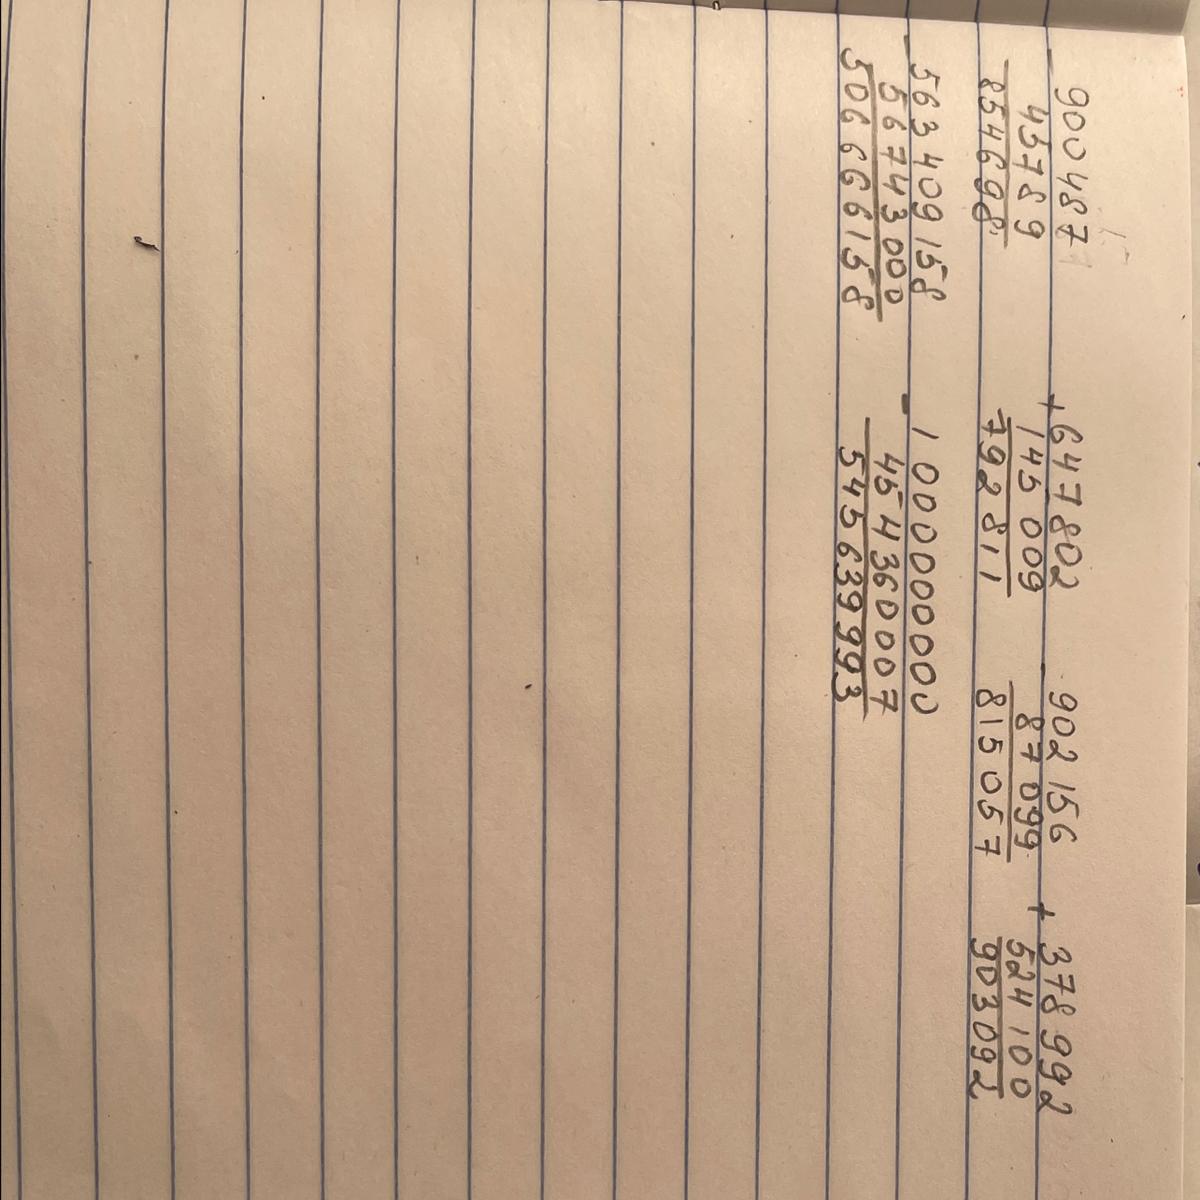 - 900487 + 647802 - 902156 + 378992
45789 145009 87099 524100
854698 792811 815057 903092
- 563409158 - 1000000000
56743000 454360007
506666158 545639993